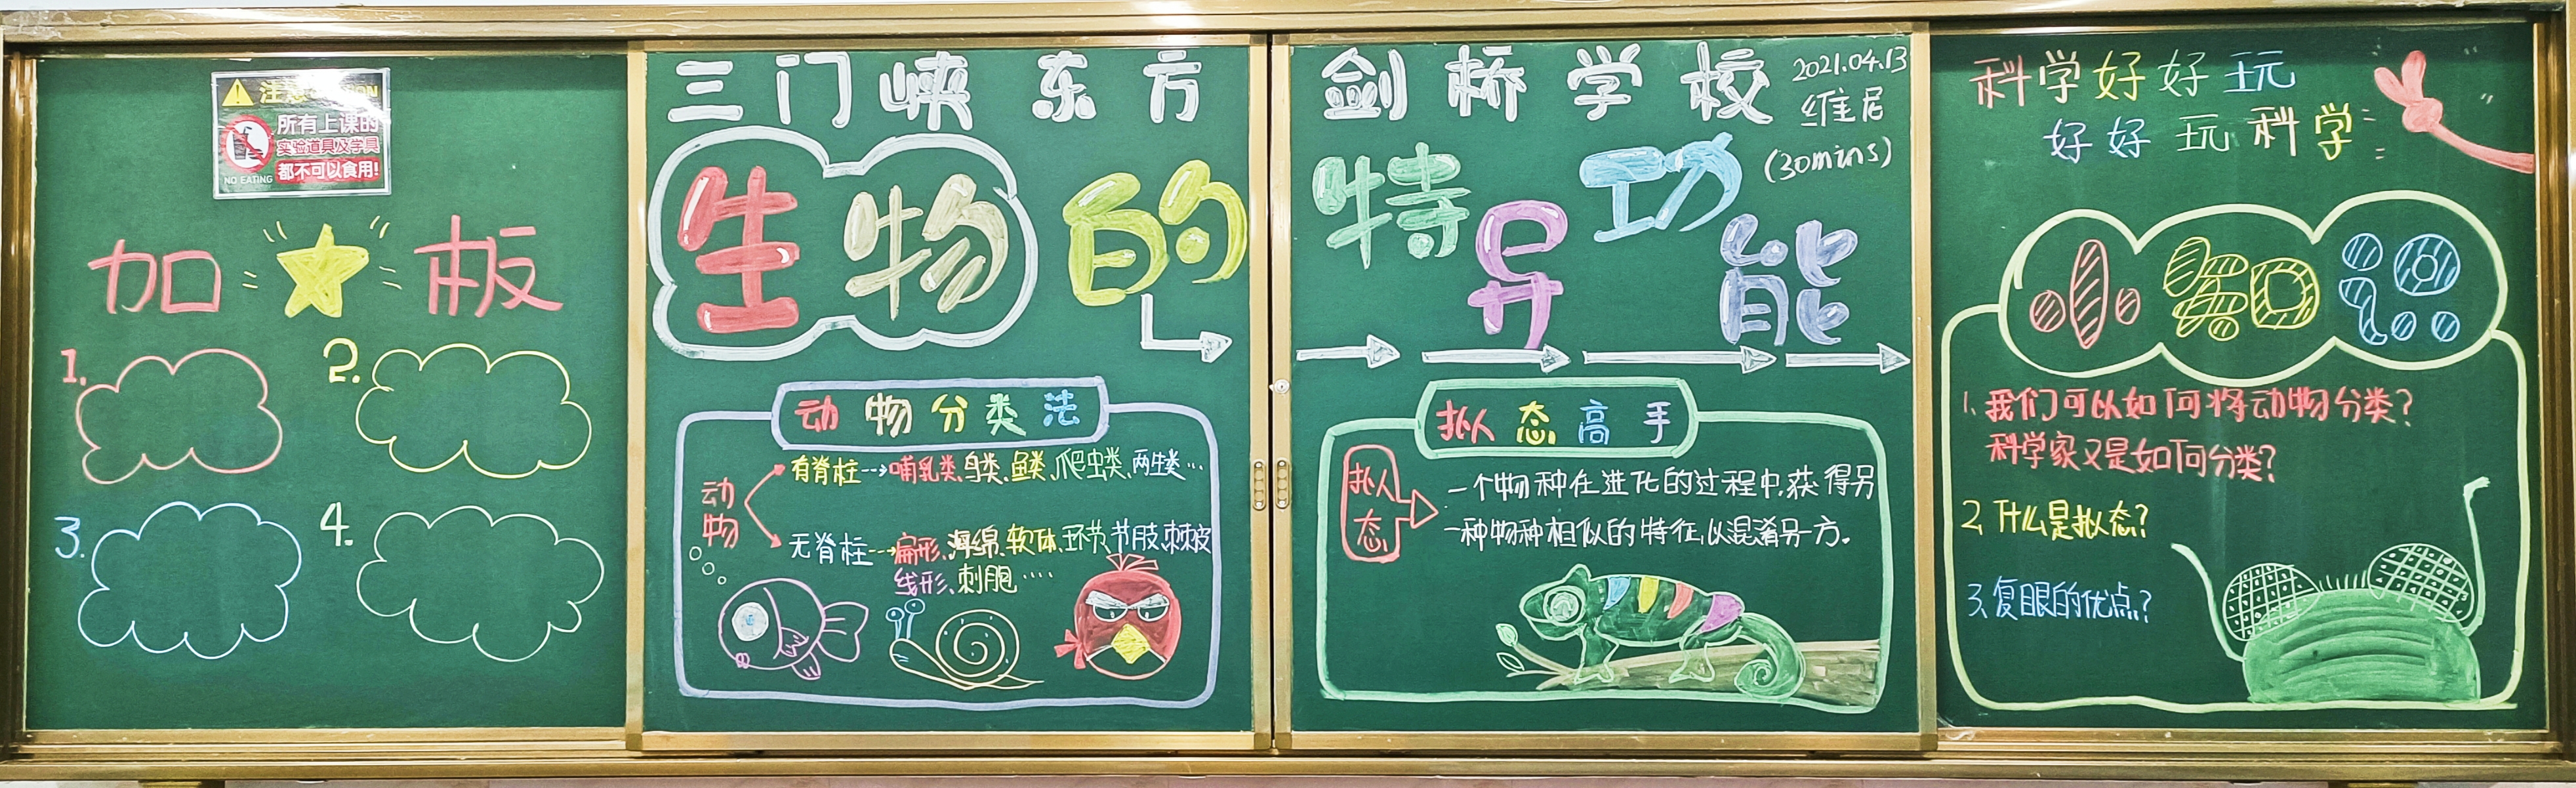 注意
所有上课的
实验道具及学具
都不可以食用!
NO EATING
加 板
1.
2.
3.
4.
三门峡东方
生物的
动物分类法
动物
有脊柱→哺乳类、鸟类、鱼类、爬虫类、两生类…
无脊柱→扁形、海绵、软体、环节、节肢、棘皮
线形、刺胞….
剑桥学校
2021.04.13
维尼
(30mins)
特异功能
拟态高手
拟态
一个物种在进化的过程中,获得另
一种物种相似的特征,以混淆另一方。
科学好好玩
好好玩科学
小知识
1、我们可以如何将动物分类?
科学家又是如何分类?
2、什么是拟态?
3、复眼的优点?